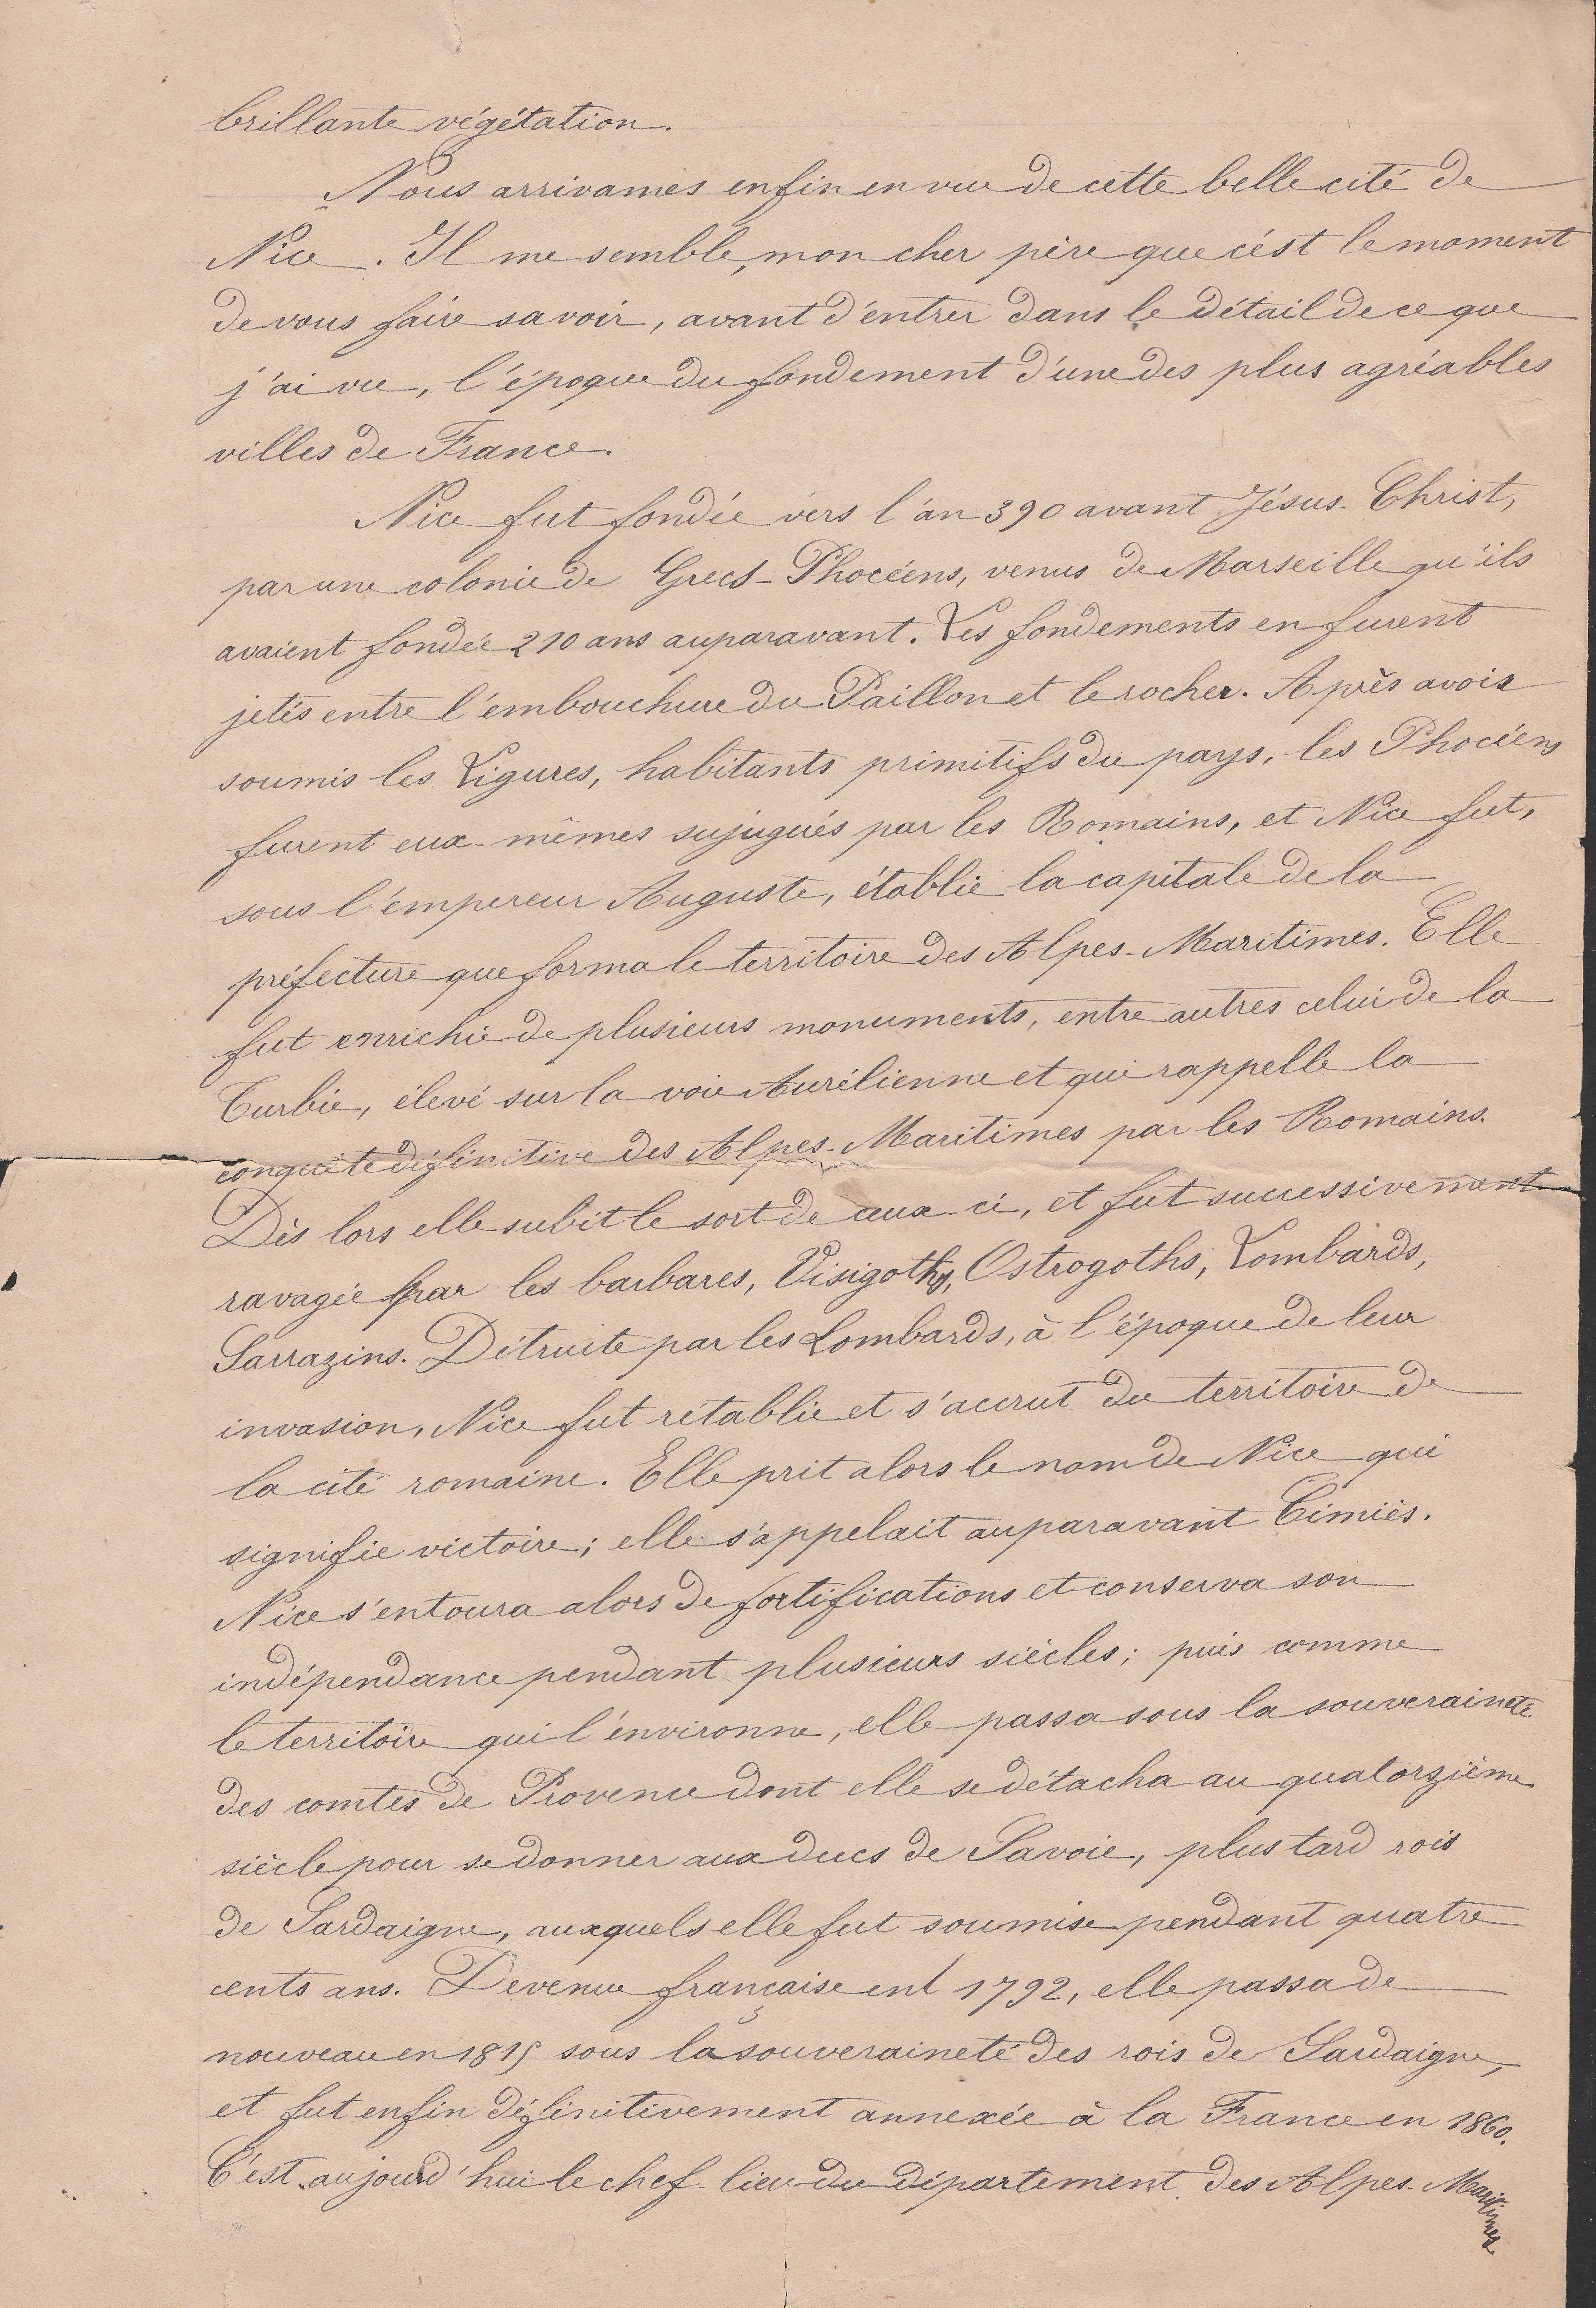 brillante végétation.
Nous arrivames enfin en vue de cette belle cité de
Nice. Il me semble, mon cher père que c'est le moment
de vous faire savoir, avant d'entrer dans le détail de ce que
j'ai vu, l'époque du fondement d'une des plus agréables
villes de France.
Nice fut fondée vers l'an 390 avant Jésus-Christ,
par une colonie de Grecs-Phocéens, venus de Marseille qu'ils
avaient fondée 210 ans auparavant. Les fondements en furent
jetés entre l'embouchure du Paillon et le rocher. Après avoir
soumis les Ligures, habitants primitifs du pays, les Phocéens
furent eux-mêmes sujugués par les Romains, et Nice fut,
sous l'empereur Auguste, établie la capitale de la
préfecture que forma le territoire des Alpes-Maritimes. Elle
fut enrichie de plusieurs monuments, entre autres celui de la
Turbie, élevé sur la voie Aurélienne et qui rappelle la
conquête définitive des Alpes-Maritimes par les Romains.
Dès lors elle subit le sort de ceux-ci, et fut successivement
ravagée par les barbares, Visigoths, Ostrogoths, Lombards,
Sarrazins. Détruite par les Lombards, à l'époque de leur
invasion, Nice fut rétablie et s'accrut du territoire de
la cité romaine. Elle prit alors le nom de Nice qui
signifie victoire; elle s'appelait auparavant Cimiès.
Nice s'entoura alors de fortifications et conserva son
indépendance pendant plusieurs siècles; puis comme
le territoire qui l'environne, elle passa sous la souveraineté
des comtes de Provence dont elle se détacha au quatorzième
siècle pour se donner aux ducs de Savoie, plus tard rois
de Sardaigne, auxquels elle fut soumise pendant quatre
cents ans. Devenue française en 1792, elle passa de
nouveau en 1815 sous la souveraineté des rois de Sardaigne,
et fut enfin définitivement annexée à la France en 1860.
C'est aujourd'hui le chef-lieu du département des Alpes-Maritimes